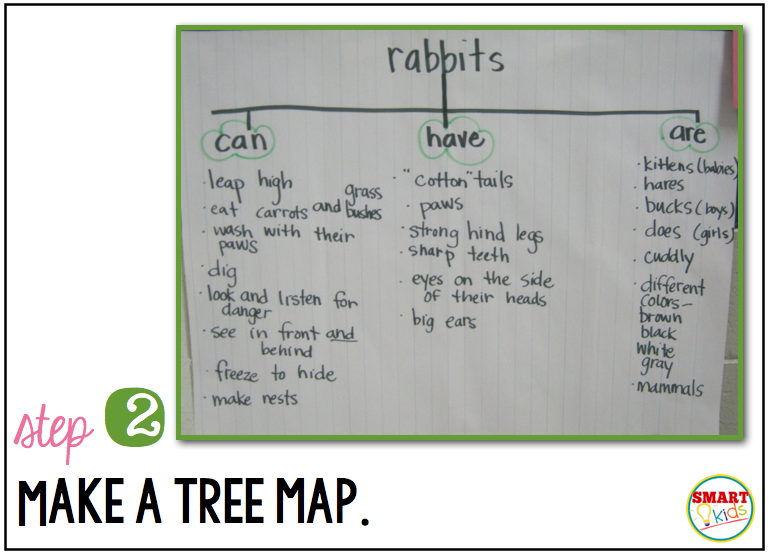 rabbits
can
have
are
· leap high
· eat carrots and grass
bushes
· wash with their
paws
· dig
· look and listen for
danger
· see in front and
behind
· freeze to hide
· make nests
· "cotton" tails
· paws
· strong hind legs
· sharp teeth
· eyes on the side
of their heads
· big ears
· kittens (babies)
· hares
· bucks (boys)
· does (girls)
· cuddly
· different
colors-
brown
black
white
gray
· mammals
step 2
MAKE A TREE MAP.
SMART
kids